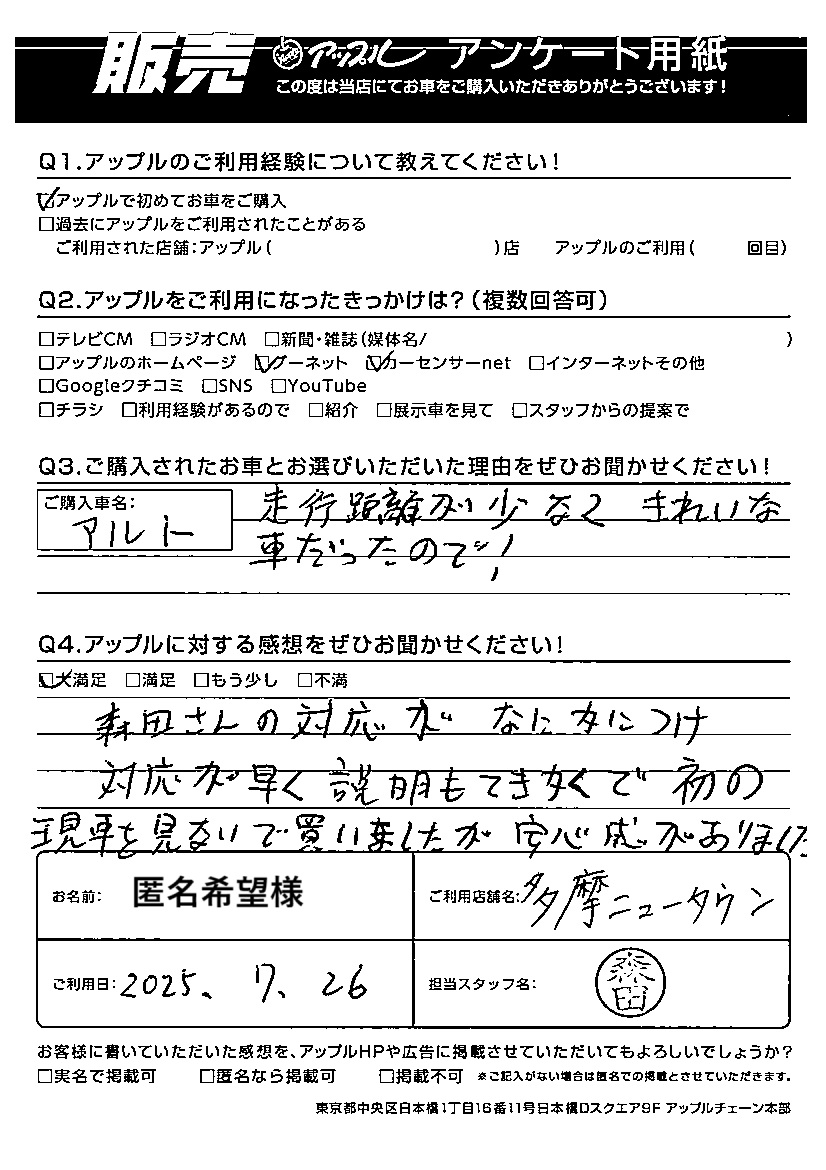 販売 アップル アンケート用紙
この度は当店にてお車をご購入いただきありがとうございます!
Q1.アップルのご利用経験について教えてください!
☑アップルで初めてお車をご購入
□過去にアップルをご利用されたことがある
ご利用された店舗:アップル( )店 アップルのご利用( 回目)
Q2.アップルをご利用になったきっかけは?(複数回答可)
□テレビCM □ラジオCM □新聞・雑誌(媒体名/ )
□アップルのホームページ ☑グーネット ☑カーセンサーnet □インターネットその他
□Googleクチコミ □SNS □YouTube
□チラシ □利用経験があるので □紹介 □展示車を見て □スタッフからの提案で
Q3.ご購入されたお車とお選びいただいた理由をぜひお聞かせください!
ご購入車名:
アルト
走行距離が少なく きれいな
車だったので!
Q4.アップルに対する感想をぜひお聞かせください!
☑大満足 □満足 □もう少し □不満
森田さんの対応が なにかにつけ
対応が早く説明もてきかくで初の
現車を見ないで買いましたが安心感がありました
お名前: 匿名希望様
ご利用店舗名: 多摩ニュータウン
ご利用日: 2025、7、26
担当スタッフ名: 森田
お客様に書いていただいた感想を、アップルHPや広告に掲載させていただいてもよろしいでしょうか?
□実名で掲載可 □匿名なら掲載可 □掲載不可 ※ご記入がない場合は匿名での掲載とさせていただきます。
東京都中央区日本橋1丁目16番11号日本橋Dスクエア9F アップルチェーン本部